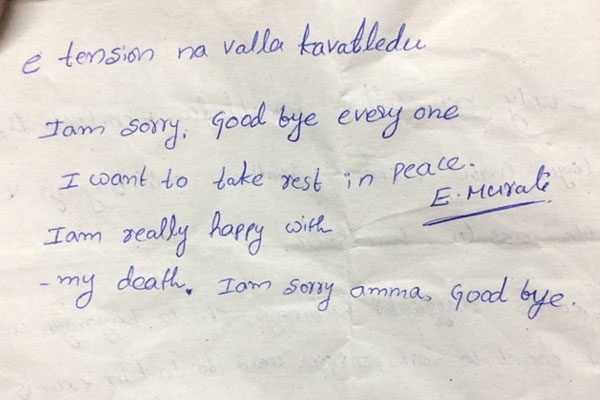 e tension na valla kavatledu
Iam sorry, Good bye every one
I want to take rest in peace.
E. Murali
Iam really happy with
my death. Iam sorry amma, Good bye.